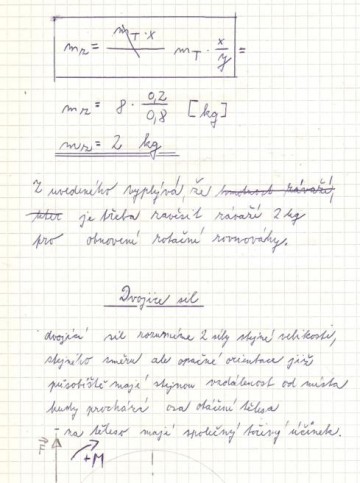 m_z = m_T · x m_T · x/y =
m_z = 8 · 0,2/0,8 [kg]
m_z = 2 kg
Z uvedeného vyplývá, že hmotnost závaží,
je třeba zavěsit závaží 2 kg
pro obnovení rotační rovnováhy.
Dvojice sil
dvojicí sil rozumíme 2 síly stejné velikosti,
stejného směru ale opačné orientace jejíž
působiště mají stejnou vzdálenost od místa
kudy prochází osa otáčení tělesa
- na těleso mají společný točivý účinek.
F +M